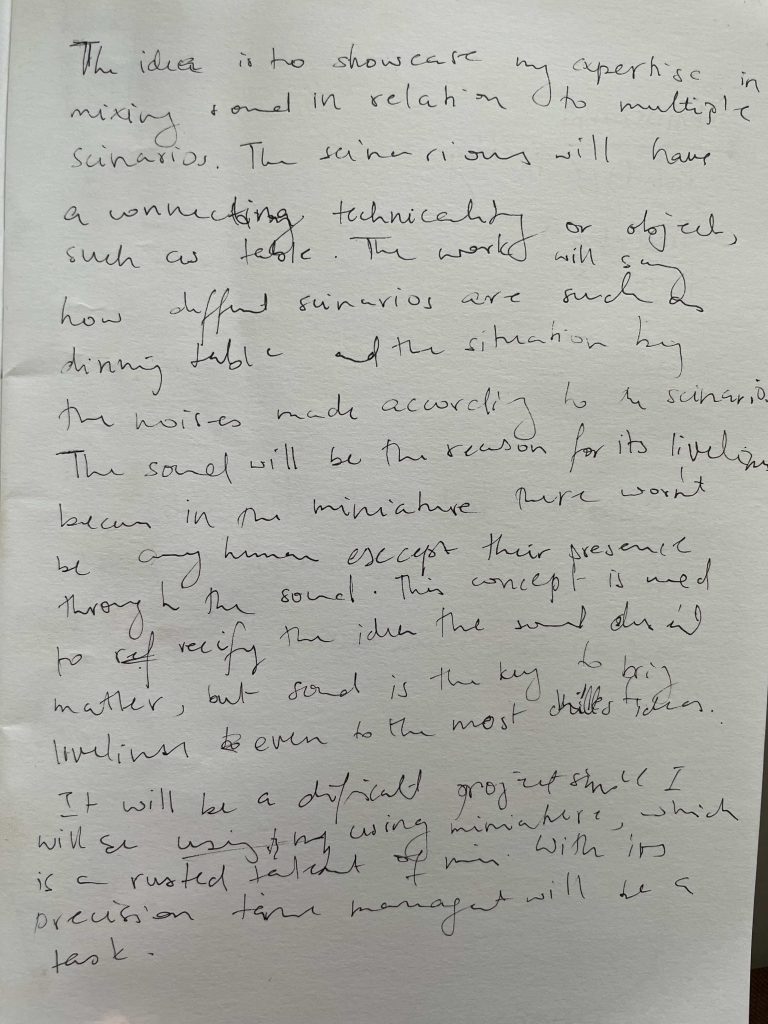 The idea is to showcase my expertise in
mixing sound in relation to multiple
scinarios. The scinarious will have
a connecting technicality or object,
such as table. The work will say
how diffent scinarios are such as
dinning table and the situation by
the noises made according to the scinarios
The sound will be the reason for its
in the miniature there won't
be any human except their presence
through the sound. This concept is used
to recify the idea the sound
matter, but sound is the key to brig
liveliness even to the most ideas.
It will be a dificult project since I
will be using my using miniature, which
is a rusted talent of min. With its
precision time managent will be a
task.